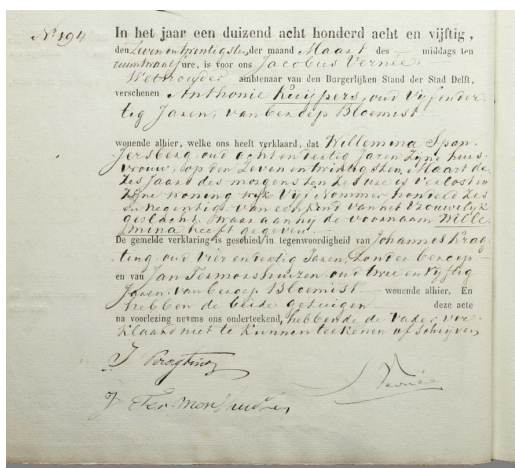 No 194
In het jaar een duizend acht honderd acht en vijftig,
den Zeven en twintigsten der maand Maart des — middags ten
ure, is voor ons Jacobus Vernée,
Wethouder ambtenaar van den Burgerlijken Stand der Stad Delft,
verschenen Anthonie Kuijpers, oud Vijf en der-
tig Jaren, van beroep Bloemist
wonende alhier, welke ons heeft verklaard, dat Willemina Span-
jersberg, oud acht en dertig Jaren Zijne huis-
vrouw, op den Zeven en twintigsten Maart de
Zes Jaars des morgens ten Zes ure is verlost in
Zijne woning wijk Vijf Nommer honderd Zes
en negentich van een kind van het Vrouwelijk
geslacht, waaraan hij de voornaam Wille
mina heeft gegeven.
De gemelde verklaring is geschied in tegenwoordigheid van Johannes Krag-
ting oud vier en dertig Jaren, Zonder beroep
en van Jan Termorshuizen, oud twee en vijftig
Jaren, van beroep Bloemist — wonende alhier. En
hebben de beide getuigen deze acte
na voorlezing nevens ons onderteekend, hebbende de vader ver-
klaard niet te kunnen teekenen of schrijven
J Kragting
J Vernée
J Ter Mors huizen